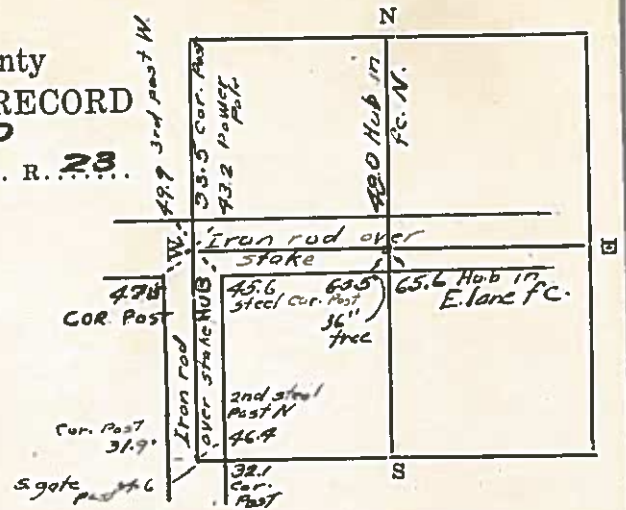 N
nty
RECORD
R. 23
49.9 3rd post W.
33.5 Cor. Post
43.2 Power Pole
49.0 Hub in
fc. N.
W.
Iron rod over
stake
E
47.8
COR. POST
HUB
45.6
Steel Cor. Post
63.5
36"
tree
65.6 Hub in
E. lane fc.
Iron rod
over stake
2nd steel
Post N
46.4
Cor. Post
31.9
S. gate
32.1
Cor.
Post
S